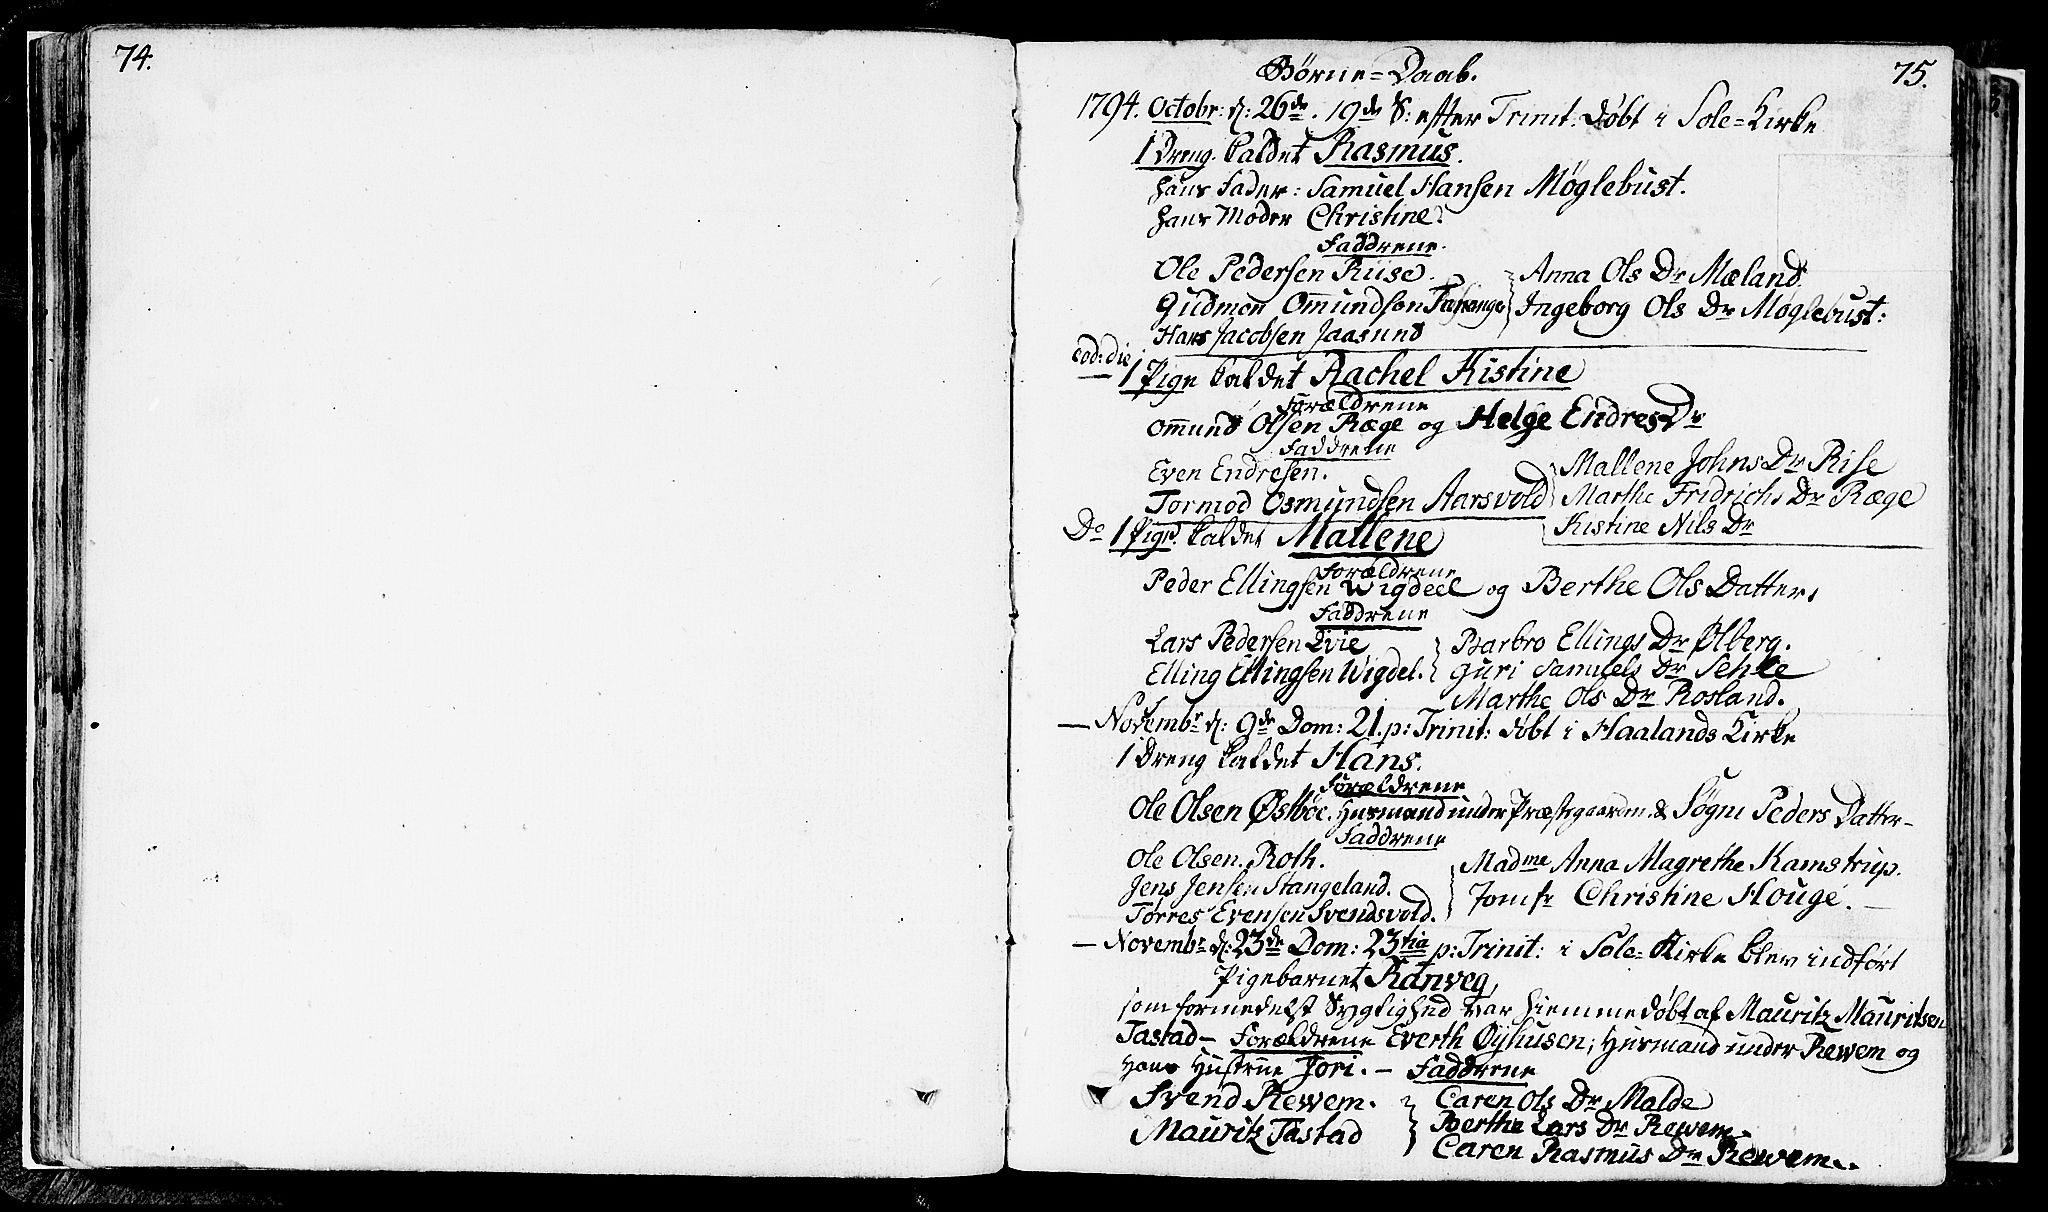 74.
75.
Børne=Daab.
1794. Octobr: d: 26de. 19de S: efter Trinit: døbt i Sole=Kirke
1 Dreng. kaldet Rasmus.
hans Fader: Samuel Hansen Møglebust.
hans Moder Christine.
Faddrene.
Ole Pedersen Riise. Anna Ols Dr Mæland.
Gudmon Omundsen Tananger Ingeborg Ols Dr Møglebust:
Hans Jacobsen Jaasund
eod: die 1 Pige kaldet Rachel Kistine
Forældrene
Omund Olsen Ræge og Helge Endres Dr
Faddrene
Even Endresen. Mallene Johns Dr Rise
Tormod Osmundsen Aarsvold Marthe Fridrichs Dr Ræge
Kistine Nils Dr
Do 1 Pige. kaldet Mallene
Forældrene
Peder Ellingsen Wigdeel og Berthe Ols Datter,
Faddrene
Lars Pedersen Qvie Barbro Ellings Dr Ølberg.
Elling Ellingsen Wigdel. Guri Samuels Dr Sehle
Marthe Ols Dr Rosland.
— Novembr d: 9de Dom: 21. p: Trinit: døbt i Haalands Kirke
1 Dreng kaldet Hans.
Forældrene
Ole Olsen Østbøe. Husmand under Præstegaarden. & Søgni Peders Datter—
Faddrene
Ole Olsen. Roth. Madme Anna Magrethe Kamstrup.
Jens Jensen Stangeland. Jomfr Christine Houge.—
Tørres Evensen Svendsvold.
— Novembr d: 23de Dom: 23tia p: Trinit: i Sole=Kirke blev indført
Pigebarnet Ranveg,
som formedelst Svaglighed var hiemmedøbt af Mauritz Mauritsen
Tastad— Forældrene Everth Øyhusen; Husmand under Rewem og
Hans Hustrue Jori.— Faddrene
Svend Rewem. Caren Ols Dr Malde
Mauritz Tastad Berthe Lars Dr Rewem.
Caren Rasmus Dr Rewem..